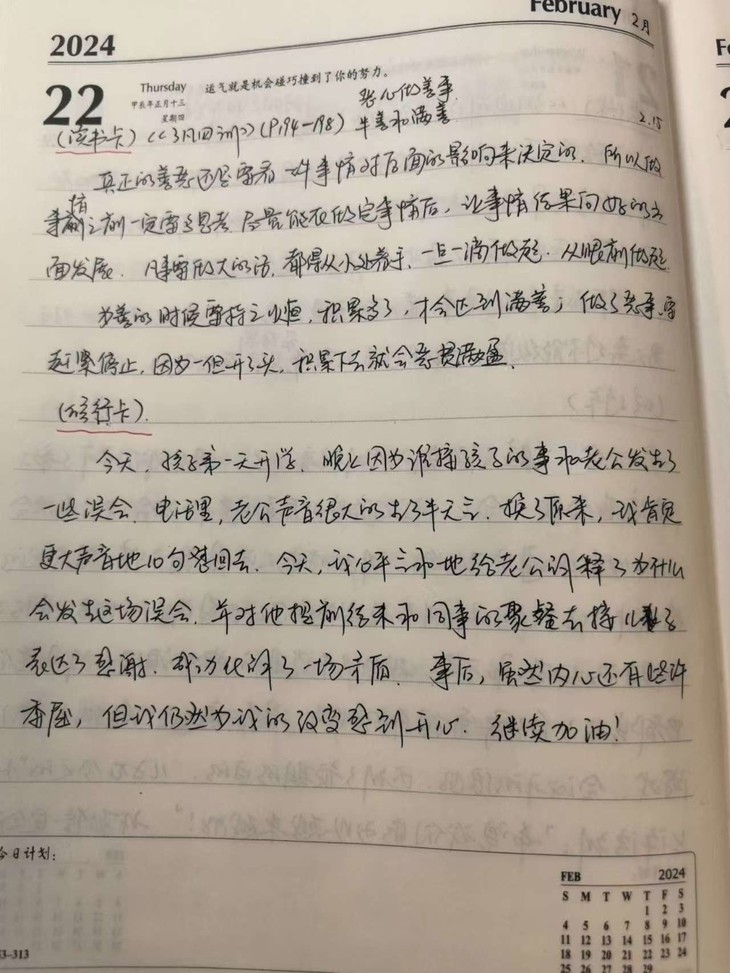 February 2月
2024
22
Thursday 运气就是机会碰巧撞到了你的努力。
甲辰年正月十三
星期四
恶心做善事.
(读书卡)《了凡四训》(P194—198) 半善和满善
2.15
真正的善恶还是需看一件事情对后面的影响来决定的. 所以做
事情之前一定需要思考. 尽量能在做完事情后, 让事情结果向好的方
面发展. 凡事需做大的话, 都得从小处着手, 一点一滴做起. 从眼前做起.
为善的时候需持之以恒, 积累多了, 才会达到满善; 做了恶事, 需
赶紧停止, 因为一但开了头, 积累下去就会恶贯满盈.
(修行卡).
今天, 孩子第一天开学. 晚上因为谁接孩子的事和老公发生了
一些误会. 电话里, 老公声音很大的出了半天言. 换了原来, 我肯定
更大声音地10句怼回去. 今天, 我心平气和地给老公解释了为什么
会发生这场误会. 并对他提前结束和同事的聚餐去接儿子
表达了感谢. 成功化解了一场矛盾. 事后, 虽然内心还有些许
委屈, 但我仍然为我的改变感到开心. 继续加油!
今日计划:
FEB 2024
S M T W T F S
1 2 3
4 5 6 7 8 9 10
11 12 13 14 15 16 17
18 19 20 21 22 23 24
25 26 27 28 29
53-313